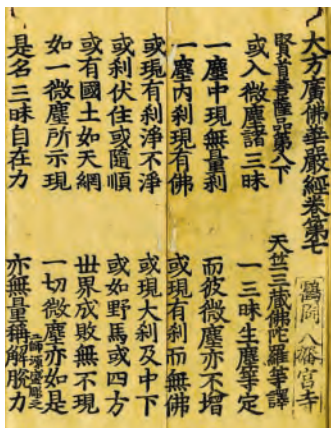 大方廣佛華嚴經卷第七
鶴岡八幡宮寺
賢首菩薩品第八下 天竺三藏佛陀羅等譯
或入微塵諸三昧 一三昧生塵等定
一塵中現無量刹 而彼微塵亦不增
一塵內刹現有佛 或現有刹而無佛
或現有刹淨不淨 或現大刹及中下
或刹伏住或隨順 或如野馬或四方
或有國土如天網 世界成敗無不現
如一微塵所示現 一切微塵亦如是
工師源盛彫之
是名三昧自在力 亦無量稱解脫力